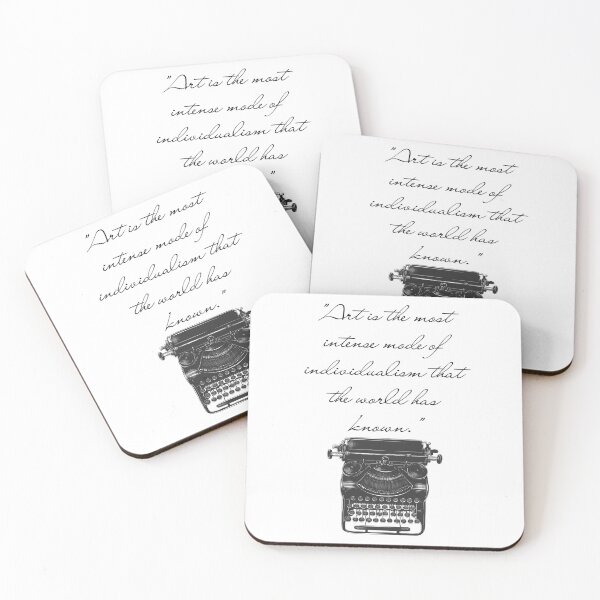 "Art is the most
intense mode of
individualism that
the world has
"
"Art is the most
intense mode of
individualism that
the world has
known."
"Art is the most
intense mode of
individualism that
the world has
known."
"Art is the most
intense mode of
individualism that
the world has
known."